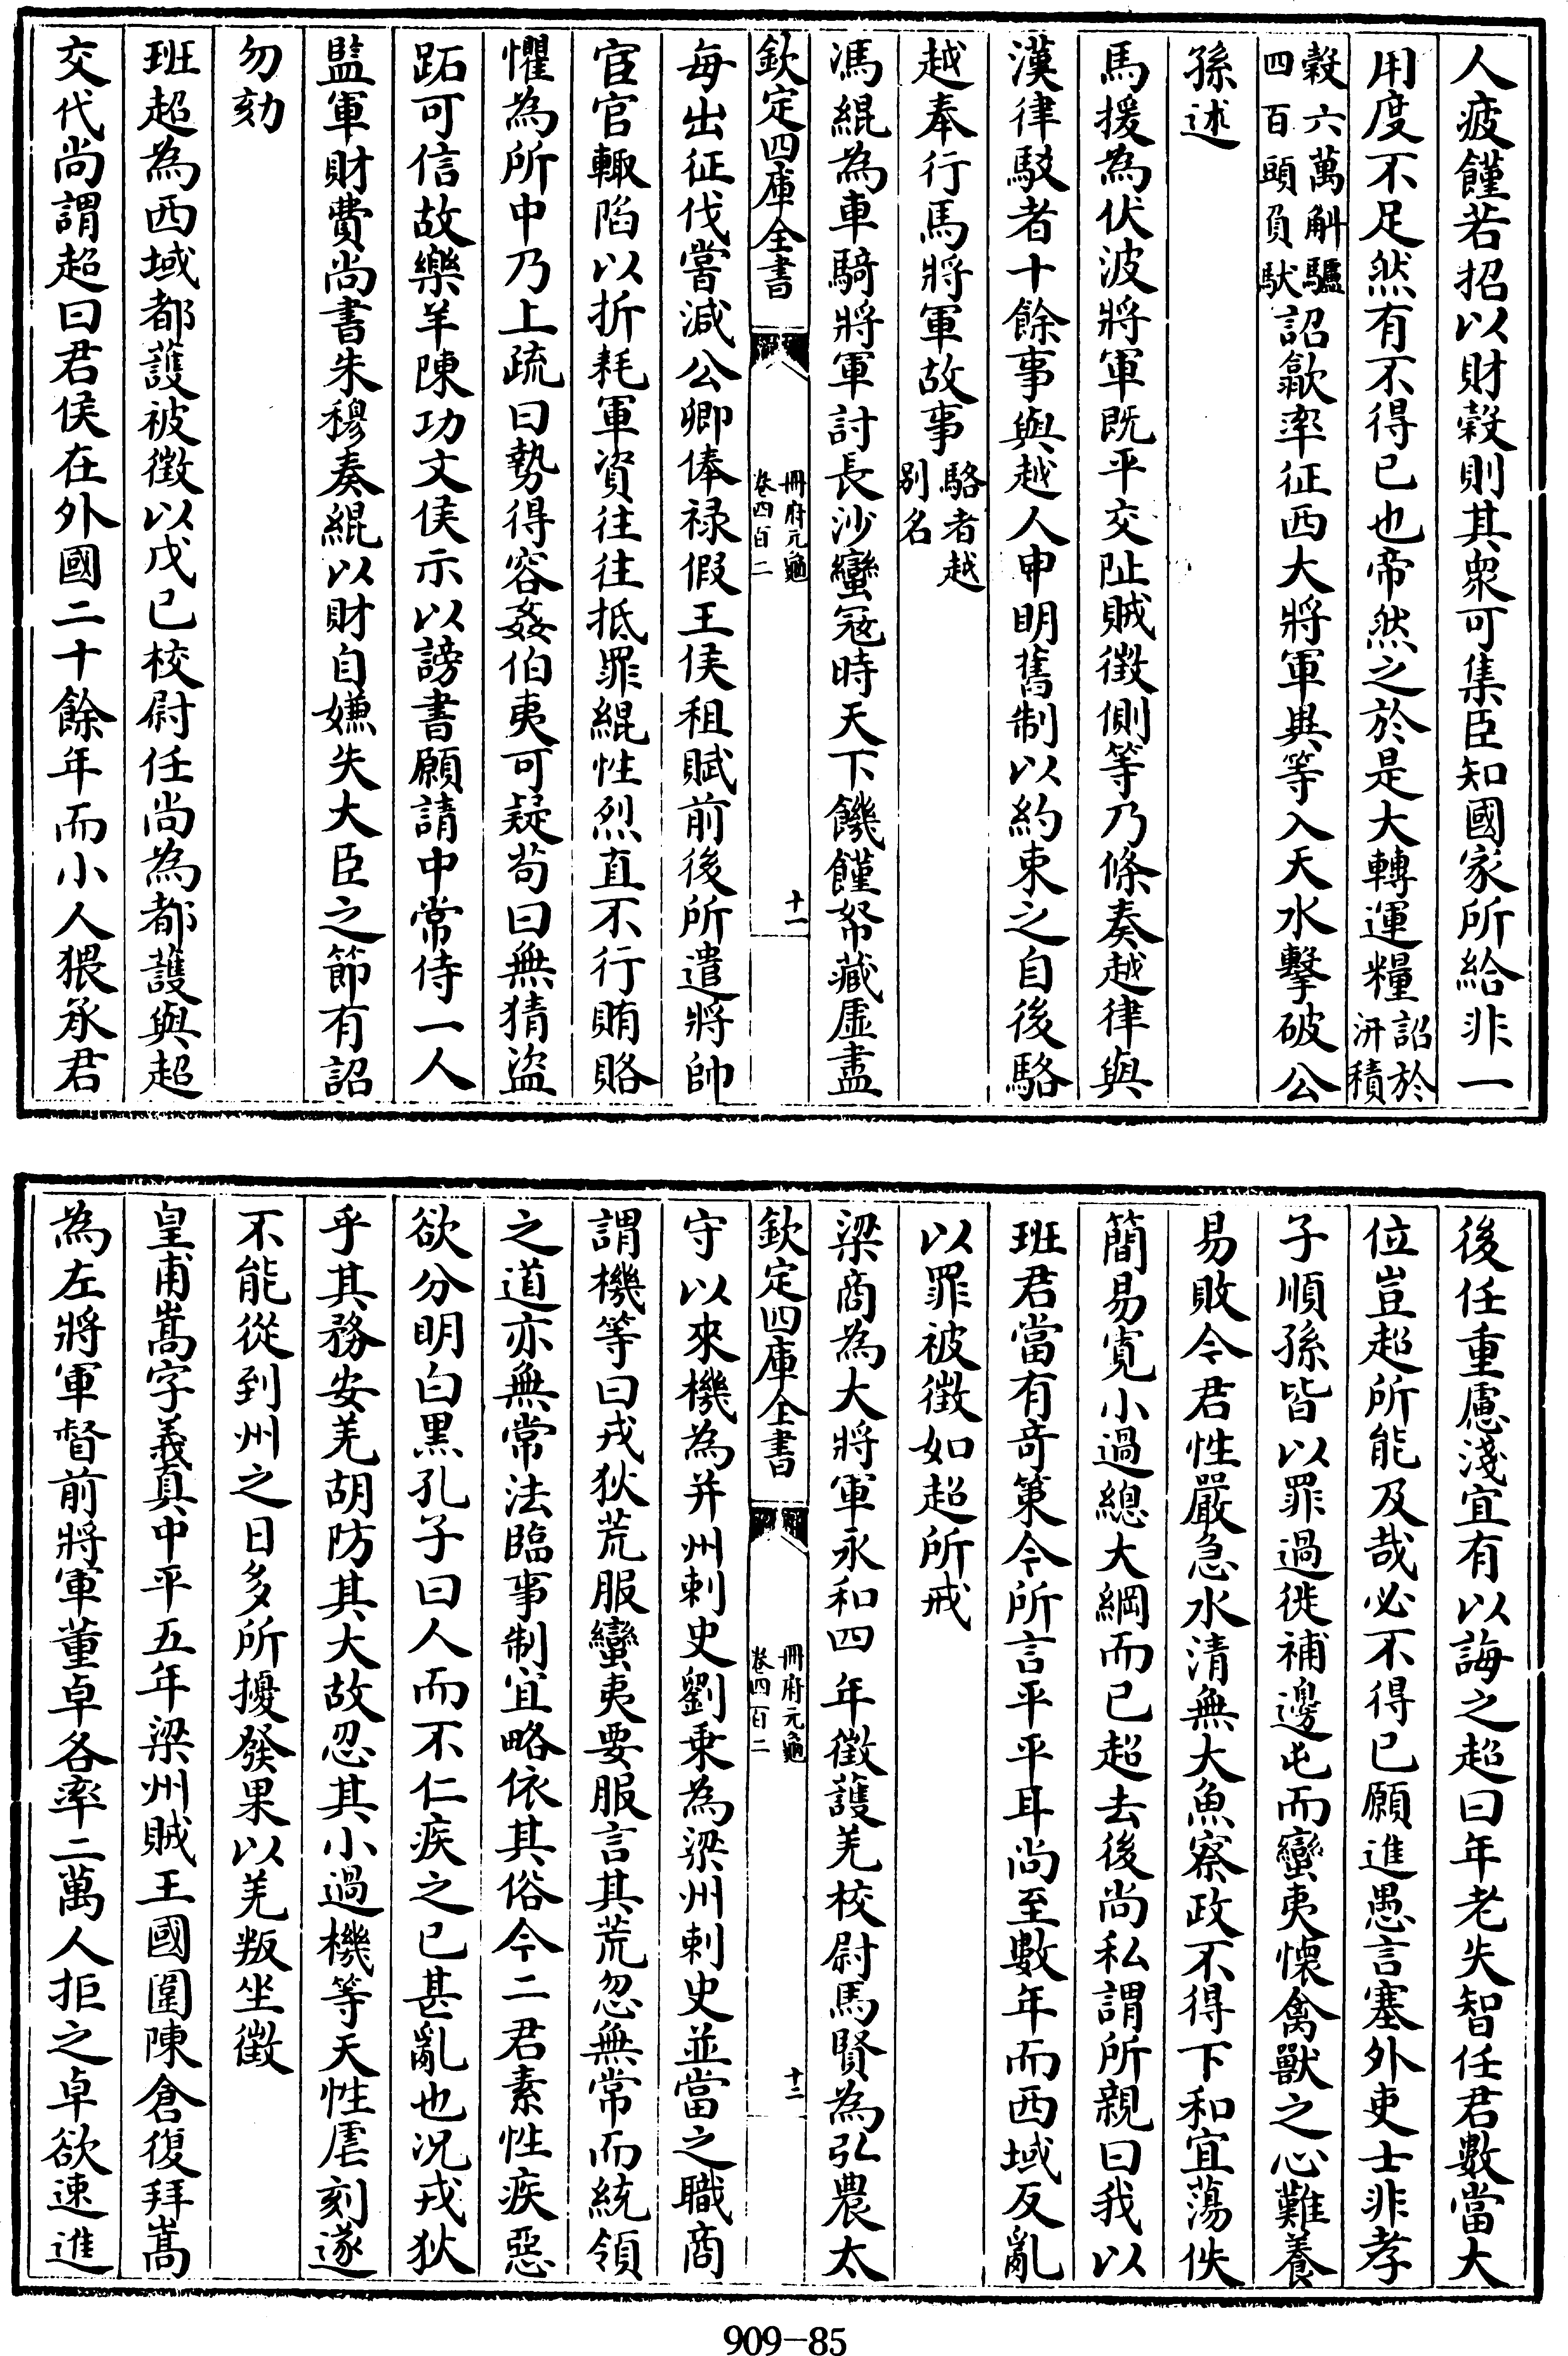 人疲饉若招以財穀則其衆可集臣知國家所給非一
用度不足然有不得已也帝然之於是大轉運糧詔於汧積
穀六萬斛驢四百頭負馱詔歙率征西大將軍異等入天水擊破公
孫述
馬援為伏波將軍既平交阯賊徵側等乃條奏越律與
漢律駮者十餘事與越人申明舊制以約束之自後駱
越奉行馬將軍故事駱者越別名
馮緄為車騎將軍討長沙蠻冦時天下饑饉帑藏虛盡
欽定四庫全書
冊府元龜
卷四百二
十一
每出征伐嘗減公卿俸禄假王侯租賦前後所遣將帥
宦官輙陷以折耗軍資往往抵罪緄性烈直不行賄賂
懼為所中乃上疏曰勢得容姦伯夷可疑苟曰無猜盜
跖可信故樂羊陳功文侯示以謗書願請中常侍一人
監軍財費尚書朱穆奏緄以財自嫌失大臣之節有詔
勿劾
班超為西域都護被徵以戊已校尉任尚為都護與超
交代尚謂超曰君侯在外國二十餘年而小人猥承君
後任重慮淺宜有以誨之超曰年老失智任君數當大
位豈超所能及哉必不得已願進愚言塞外吏士非孝
子順孫皆以罪過徙補邊屯而蠻夷懷禽獸之心難養
易敗今君性嚴急水清無大魚察政不得下和宜蕩佚
簡易寛小過總大綱而已超去後尚私謂所親曰我以
班君當有奇策今所言平平耳尚至數年而西域反亂
以罪被徵如超所戒
梁商為大將軍永和四年徵護羌校尉馬賢為弘農太
欽定四庫全書
冊府元龜
卷四百二
十二
守以來機為并州刺史劉秉為梁州刺史並當之職商
謂機等曰戎狄荒服蠻夷要服言其荒忽無常而統領
之道亦無常法臨事制宜略依其俗今二君素性疾惡
欲分明白黒孔子曰人而不仁疾之已甚亂也况戎狄
乎其務安羌胡防其大故忍其小過機等天性虐刻遂
不能從到州之日多所擾發果以羌叛坐徵
皇甫嵩字義真中平五年梁州賊王國圍陳倉復拜嵩
為左將軍督前將軍董卓各率二萬人拒之卓欲速進
909-85